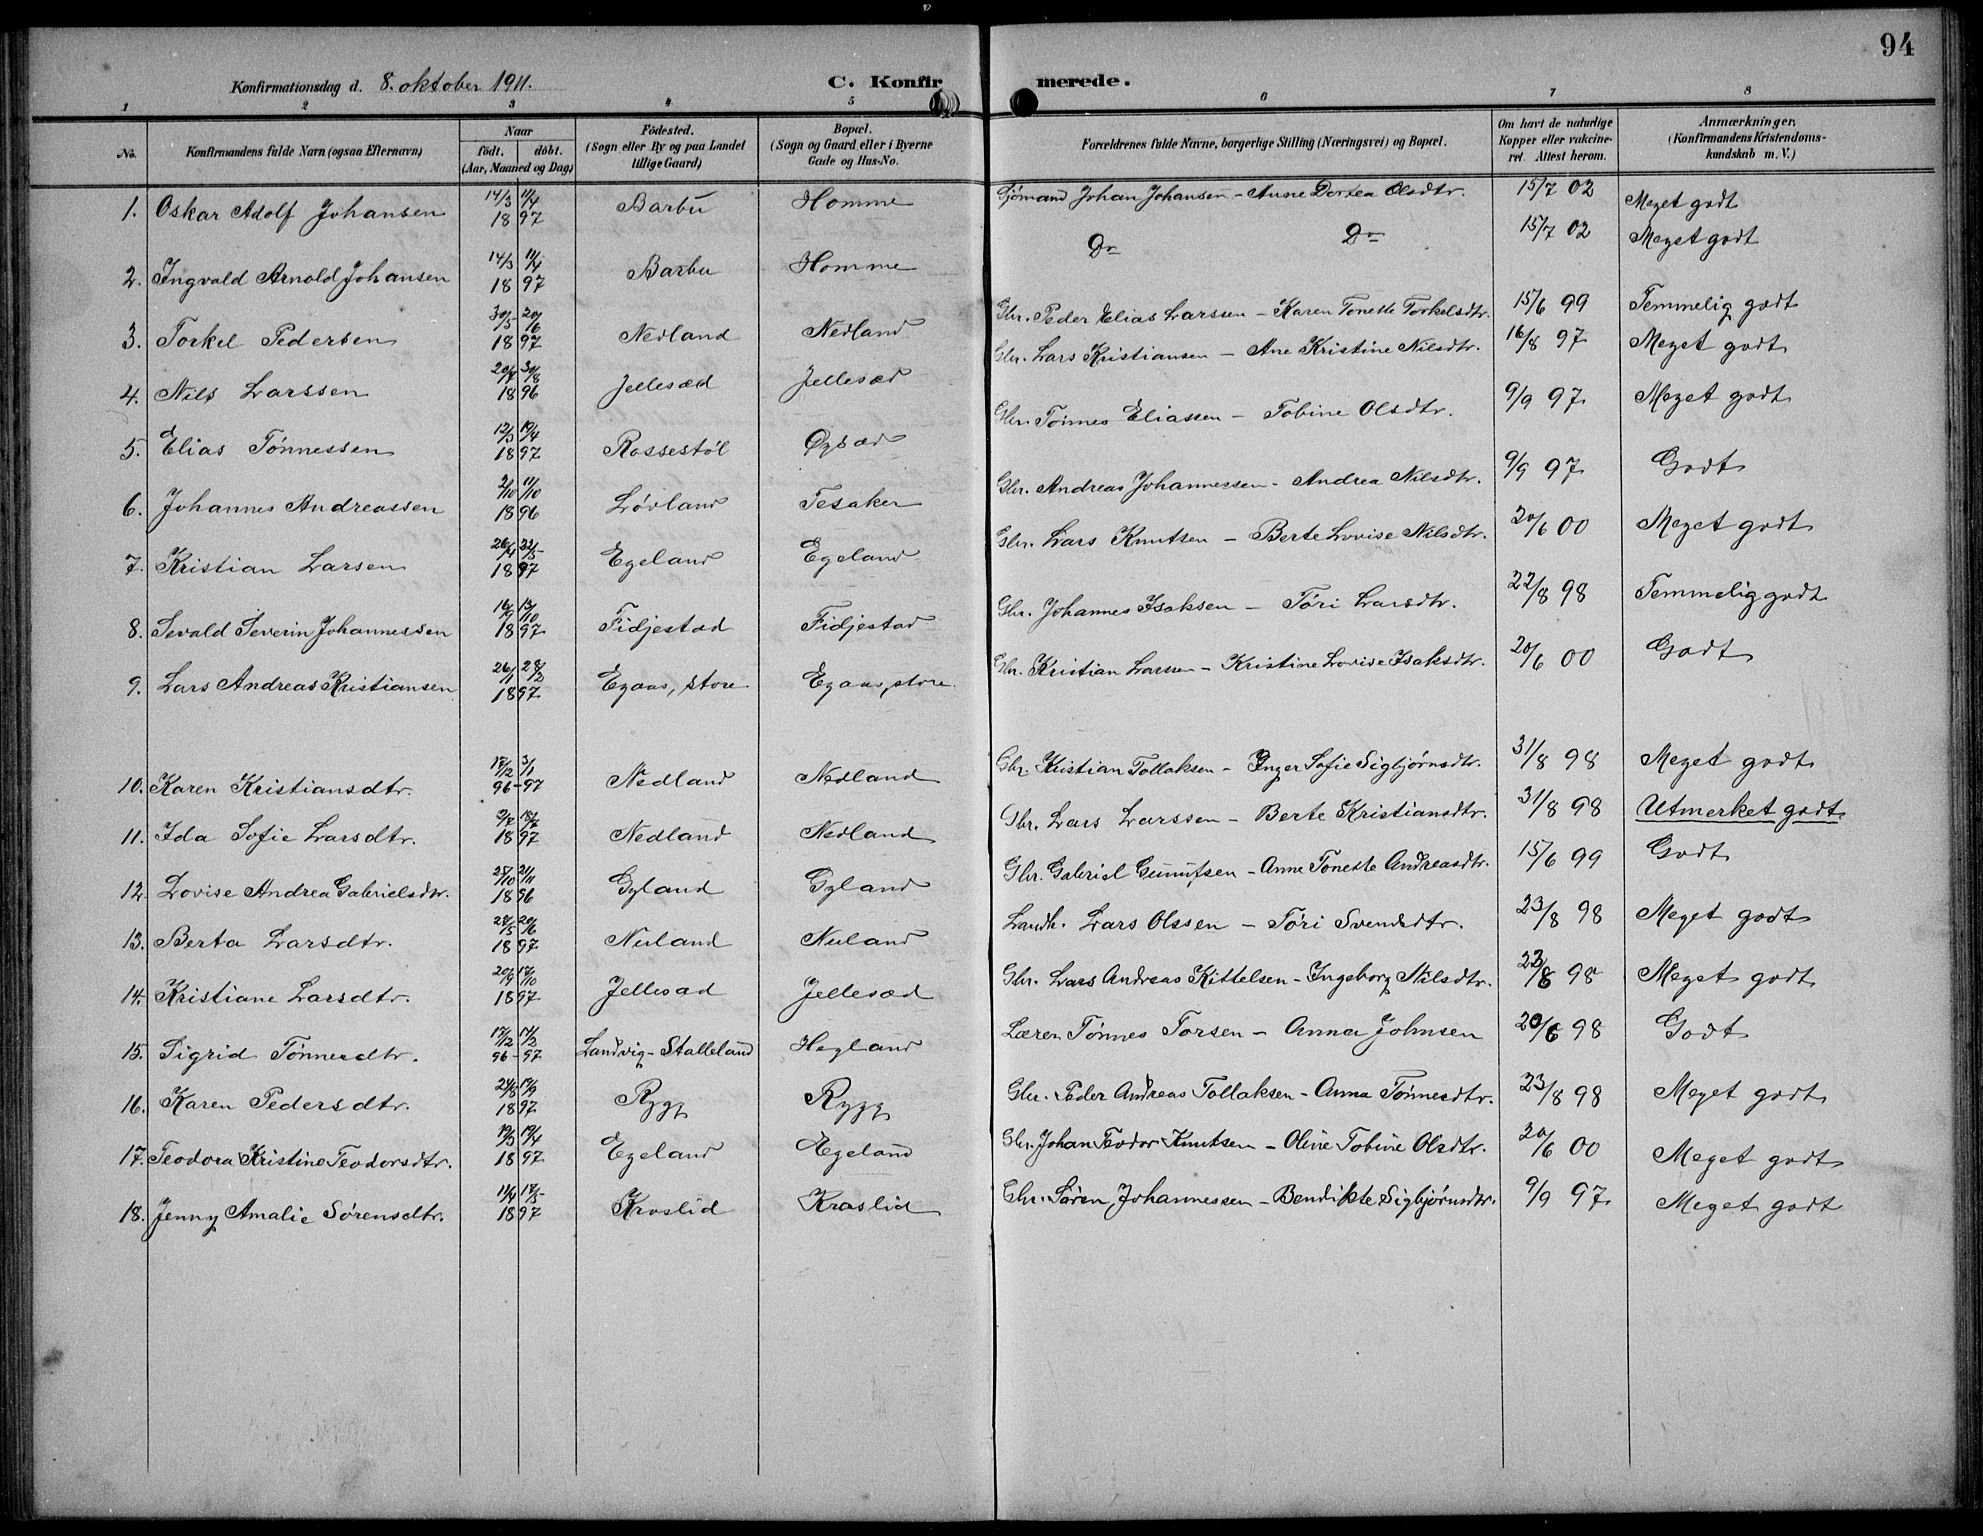 94
Konfirmationsdag d. 8. oktober 1911. C. Konfir merede.
1 2 3 4 5 6 7 8
No. Konfirmandens fulde Navn (ogsaa Efternavn) Naar födt. döbt. (Aar, Maaned og Dag) Födested. (Sogn eller By og paa Landet tillige Gaard) Bopæl. (Sogn og Gaard eller i Byerne Gade og Hus-No. Forældrenes fulde Navne, borgerlige Stilling (Næringsvei) og Bopæl. Om havt de naturlige Kopper eller vakcineret. Attest herom. Anmærkninger. (Konfirmandens Kristendomskundskab m. V.)
1. Oskar Adolf Johansen 14/3 11/4 1897 Barbu Homme Sjømand Johan Johansen - Anne Dortea Olsdtr. 15/7 02 Meget godt
2. Ingvald Arnold Johansen 14/3 11/4 1897 Barbu Homme Do Do 15/7 02 Meget godt
3. Torkel Pedersen 30/5 20/6 1897 Nedland Nedland Gbr. Peder Elias Larssen - Karen Tonette Torkelsdtr. 15/6 99 Temmelig godt
4. Nils Larssen 20/7 30/8 1896 Jellesæd Jellesæd Gbr. Lars Kristiansen - Ane Kristine Nilsdtr. 16/8 97 Meget godt
5. Elias Tønnessen 12/3 19/4 1897 Rossestøl Øysæd Gbr. Tønnes Eliassen - Tobine Olsdtr. 9/9 97 Meget godt
6. Johannes Andreassen 2/10 11/10 1896 Løvland Tesaker Gbr. Andreas Johannessen - Andrea Nilsdtr. 9/9 97 Godt
7. Kristian Larsen 26/4 23/5 1897 Egeland Egeland Gbr. Lars Knutsen - Berte Lovise Nilsdtr. 20/6 00 Meget godt
8. Sevald Severin Johannessen 16/9 13/10 1897 Fidjestad Fidjestad Gbr. Johannes Isaksen - Tóri Larsdtr. 22/8 98 Temmelig godt
9. Lars Andreas Kristiansen 26/1 28/2 1897 Egaas, store Egaas, store Gbr. Kristian Larssen - Kristine Lovise Isaksdtr. 20/6 00 Godt
10. Karen Kristiansdtr. 17/2 3/1 96-97 Nedland Nedland Gbr. Kristian Tollaksen - Inger Sofie Sigbjørnsdtr. 31/8 98 Meget godt
11. Ida Sofie Larsdtr. 2/7 18/7 1897 Nedland Nedland Gbr. Lars Larssen - Berte Kristiansdtr. 31/8 98 Utmerket godt
12. Lovise Andrea Gabrielsdtr. 25/10 21/11 1896 Gyland Gyland Gbr. Gabriel Gunufsen - Anne Tonette Andreasdtr. 15/6 99 Godt
13. Berta Larsdtr. 28/5 20/6 1897 Nuland Nuland Landh. Lars Olssen - Tóri Svendsdtr. 23/8 98 Meget godt
14. Kristiane Larsdtr. 20/9 17/10 1897 Jellesæd Jellesæd Gbr. Lars Andreas Kittelsen - Ingeborg Nilsdtr. 23/8 98 Meget godt
15. Sigrid Tønnesdtr. 17/2 14/3 96-97 Landvig-Stalleland Hegland Læren Tønnes Torsen - Anna Johnsen 20/6 98 Godt
16. Karen Pedersdtr. 1897 Rygg Rygg Gbr. Peder Andreas Tollaksen - Anna Tønnesdtr. 23/8 98 Meget godt
17. Teodora Kristine Teodorsdtr. 19/3 19/4 1897 Egeland Egeland Gbr. Johan Teodor Knutsen - Oline Tobine Olsdtr. 20/6 00 Meget godt
18. Jenny Amalie Sørensdtr. 11/4 17/5 1897 Kroslid Kroslid Gbr. Søren Johannessen - Bendikte Sigbjørnsdtr. 9/9 97 Meget godt